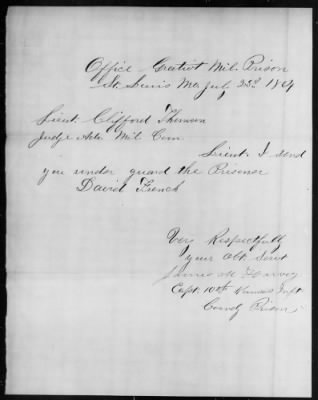 Office Gratiot Mil. Prison
St. Louis Mo July 23d 1864
Lieut Clifford Thomson
Judge Adv. Mil Com
Lieut. I send
you under guard the Prisoner
David French
Very Respectfully
your Obt. Servt
James M Harvey
Capt. 10th Kansas Inft
Comdg Prison